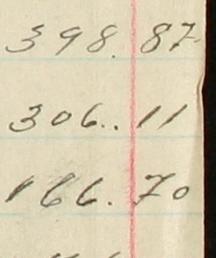 398.87
306..11
166.70